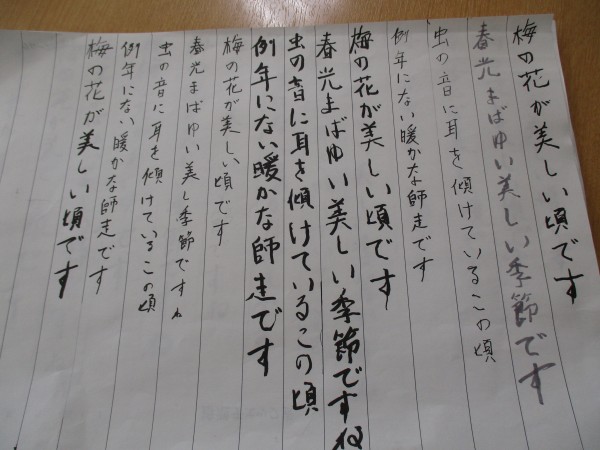 梅の花が美しい頃です
春光まばゆい美しい季節です
虫の音に耳を傾けているこの頃
例年にない暖かな師走です
梅の花が美しい頃です
春光まばゆい美しい季節ですね
虫の音に耳を傾けているこの頃
例年にない暖かな師走です
梅の花が美しい頃です
春光まばゆい美し季節ですね
虫の音に耳を傾けているこの頃
例年にない暖かな師走です
梅の花が美しい頃です